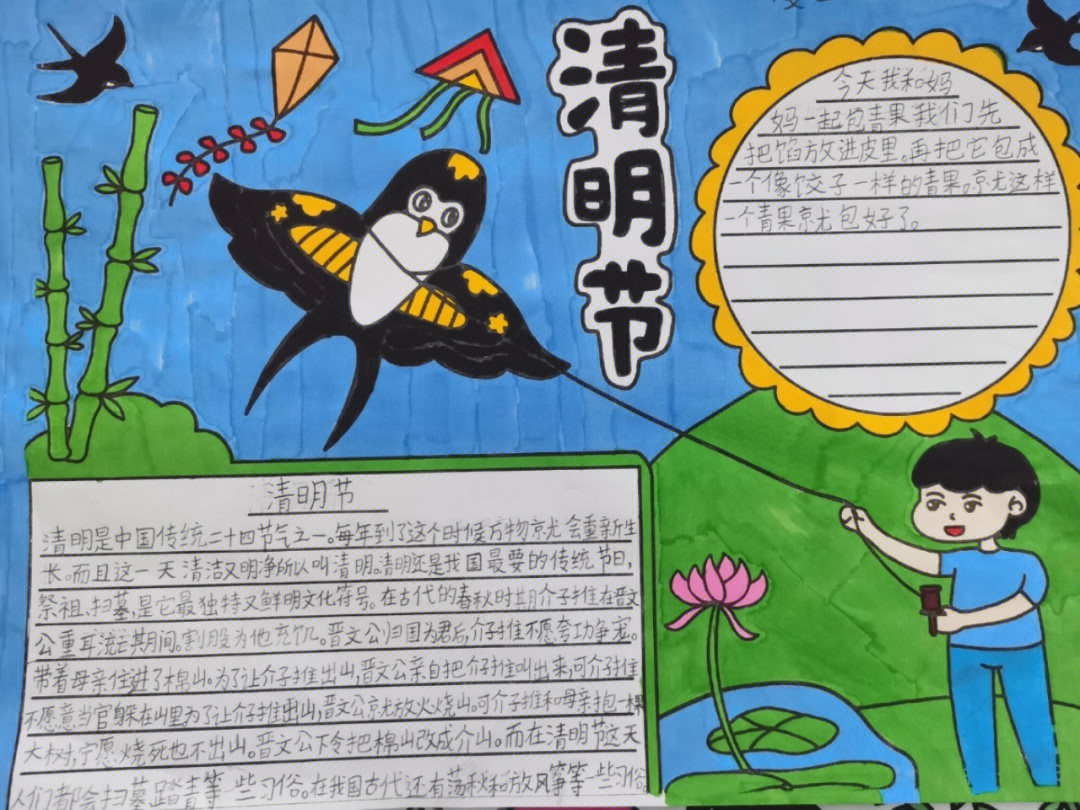 清明节
今天我和妈
妈一起包青果我们先
把馅放进皮里。再把它包成
一个像饺子一样的青果。京尤这样
一个青果京尤包好了。
清明节
清明是中国传统二十四节气之一。每年到了这个时候万物京尤会重新生
长。而且这一天清洁又明净所以叫清明。清明还是我国最要的传统节日,
祭祖、扫墓,是它最独特又鲜明文化符号。在古代的春秋时期介子推在晋文
公重耳流亡期间。割股为他充饥。晋文公归国为君后,介子推不愿夸功争宠。
带着母亲住进了棉山。为了让介子推出山,晋文公亲自把介子推叫出来,可介子推
不愿意当官躲在山里为了让介子推出山,晋文公京尤放火烧山。可介子推和母亲抱一棵
大树,宁愿烧死也不出山。晋文公下令把棉山改成介山。而在清明节这天
人们都会扫墓踏青等一些习俗。在我国古代还有荡秋和放风筝等一些习俗。